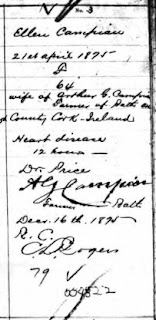 No. 3
Ellen Campian
21st april 1895
F
64
wife of Arthur G. Campian
Farmer of Bath
County Cork Ireland
Heart disease
12 hours
Dr. Price
A G Campian
Farmer — Bath
Decr. 16th. 1895
R. C.
Rogers
79 ✓
004822